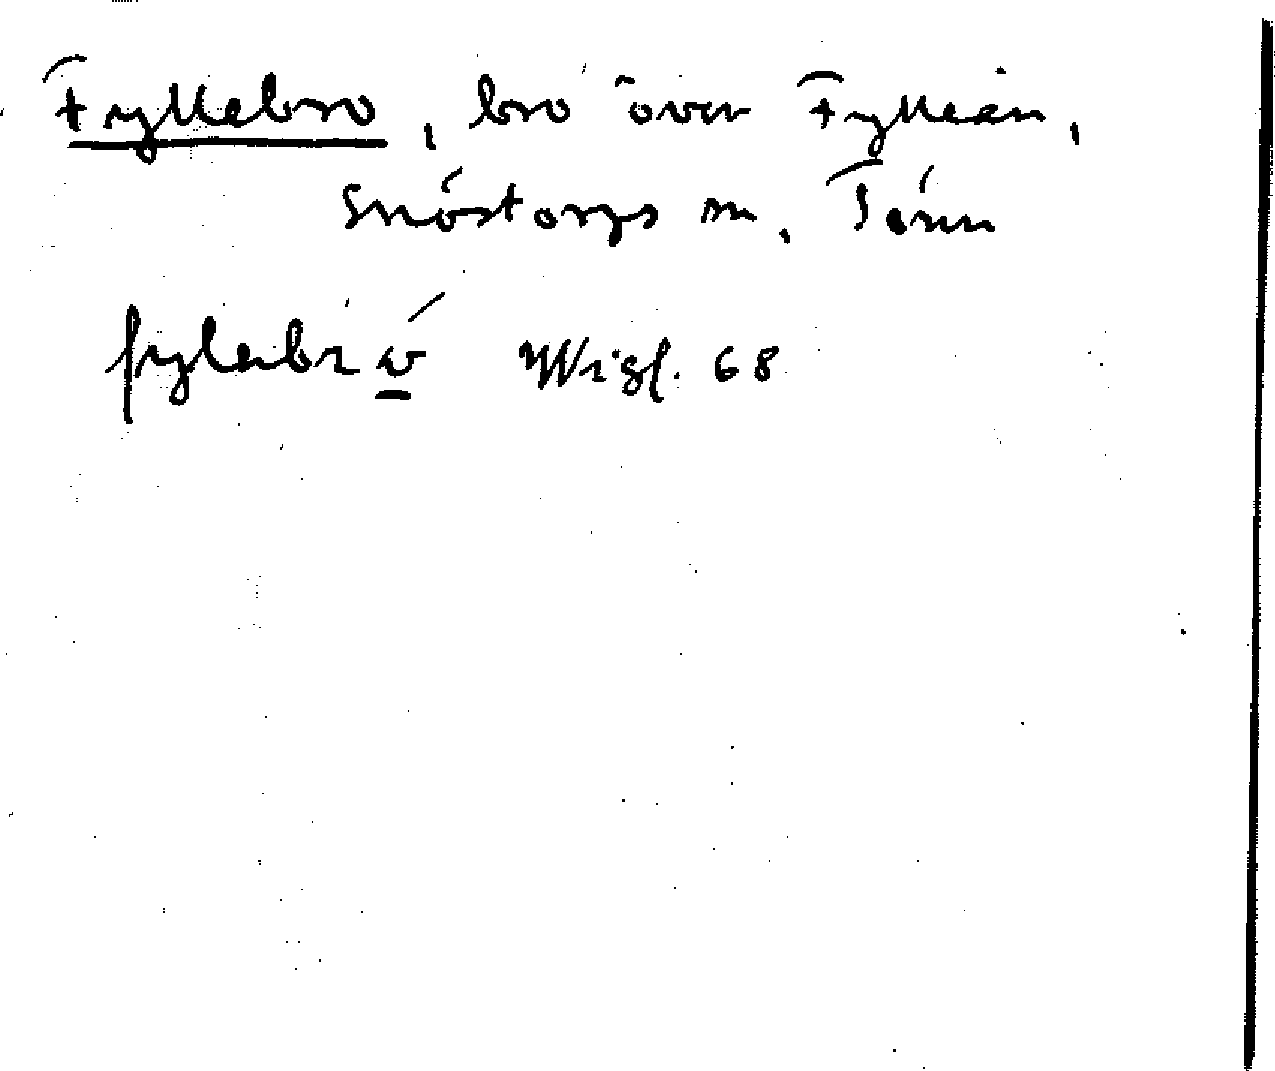 Fyllebro, bro över Fylleån,
Snöstorps sn, Tönn
fyləbrώ̲ Wigf. 68